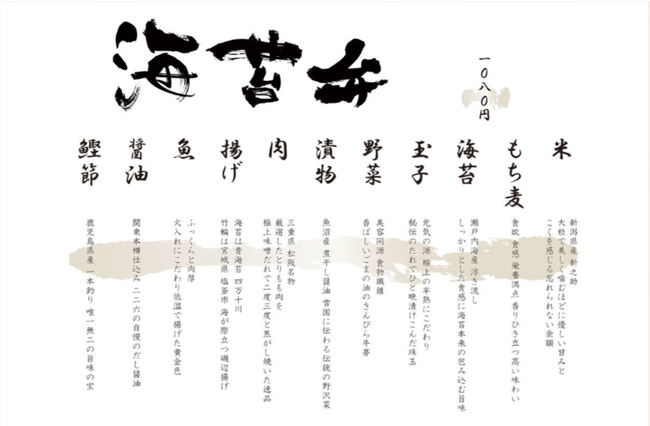 海苔弁
一〇八〇円
米
新潟県産 新之助
大粒で美しく噛むほどに優しい甘みと
こくを感じる忘れられない余韻
もち麦
食欲 食感 栄養満点 香りひき立つ高い味わい
海苔
瀬戸内海産 浮き流し
しっかりとした食感に海苔本来の包み込む旨味
玉子
元気の源 極上の半熟にこだわり
秘伝のたれでひと晩漬けこんだ珠玉
野菜
美容同源 食物繊維
香ばしいごまの油のきんぴら牛蒡
漬物
魚沼産 煮干し醤油 雪国に伝わる伝統の野沢菜
肉
三重県 松阪名物
厳選したとりもも肉を
極上味噌だれで二度三度と焦がし焼いた逸品
揚げ
海苔は青海苔 四万十川
竹輪は宮城県 塩釜市 海が際立つ磯辺揚げ
魚
ふっくらと肉厚
火入れにこだわり低温で揚げた黄金色
醤油
関東木樽仕込み 二二六の自慢のだし醤油
鰹節
鹿児島県産 一本釣り 唯一無二の旨味の宝